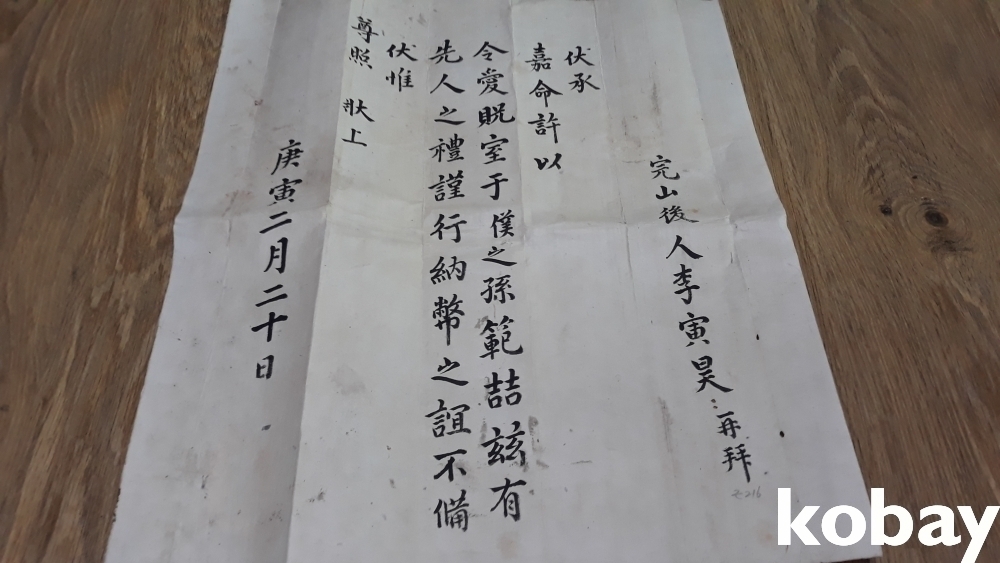 完山後人李寅昊再拜
伏承
嘉命許以
令愛貺室于僕之孫範喆兹有
先人之禮謹行納幣之誼不備
伏惟
尊照 狀上
庚寅二月二十日
kobay